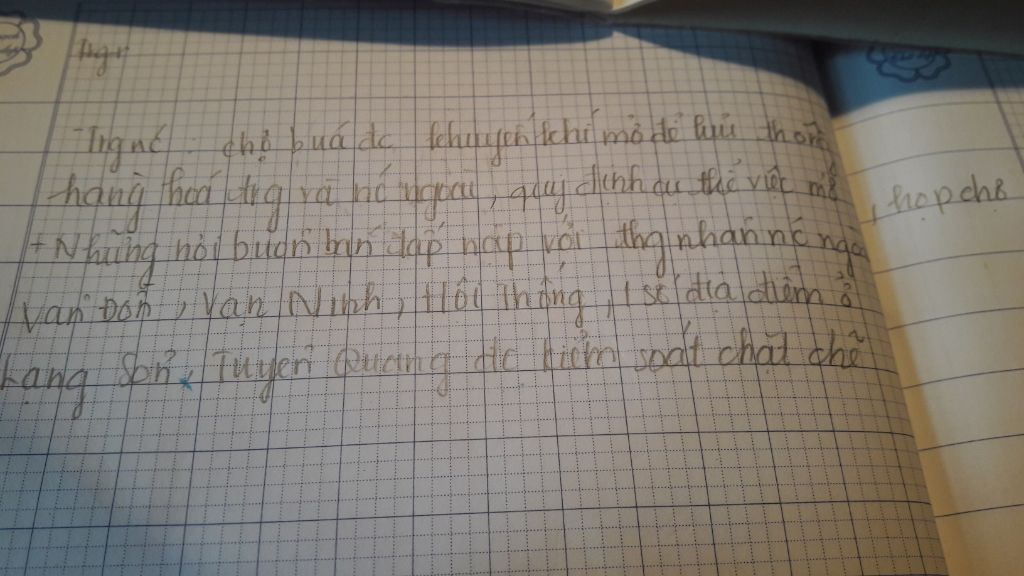 Trg n
Trg nc : chợ búa đc khuyến khí mở để lưu thông
hàng hoá trg và nc ngoài, quy định cụ thể việc mở, họp chợ
+ Những nơi buôn bán tấp nập với thg nhân nc ngoà
Vân Đồn, Vạn Ninh, Hội Thống, 1 số địa điểm ở
Lạng Sơn, Tuyên Quang đc kiểm soát chặt chẽ